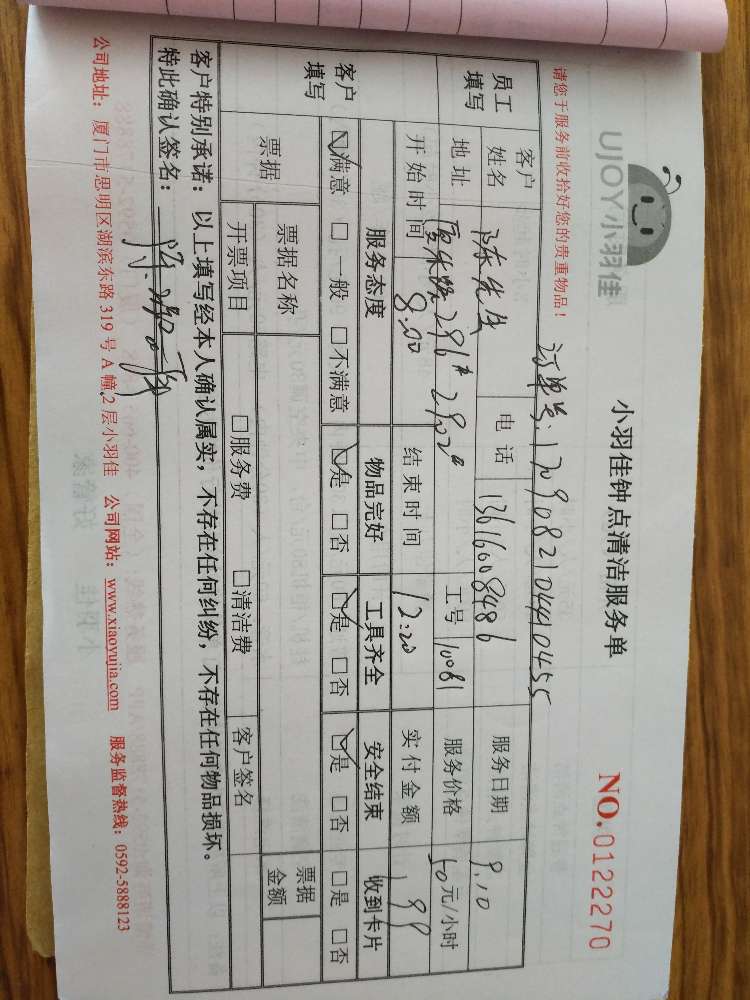 UJOY小羽佳
小羽佳钟点清洁服务单
NO.0122270
请您于服务前收拾好您的贵重物品！
订单号:1709082104410455
员工填写
客户姓名 陈先生 电话 13616008486 服务日期 9.10
地址 296# 2902# 工号 10081 服务价格 50元/小时
开始时间 8:00 结束时间 12:20 实付金额 199
客户填写
服务态度 物品完好 工具齐全 安全结束 收到卡片
☑满意 □一般 □不满意 ☑是 □否 ☑是 □否 ☑是 □否 □是 □否
票据 票据名称 票据金额
开票项目 □服务费 □清洁费 客户签名
客户特别承诺：以上填写经本人确认属实，不存在任何纠纷，不存在任何物品损坏。
特此确认签名：
公司地址：厦门市思明区湖滨东路 319 号 A 幢 2 层小羽佳 公司网站：www.xiaoyujia.com 服务监督热线：0592-5888123